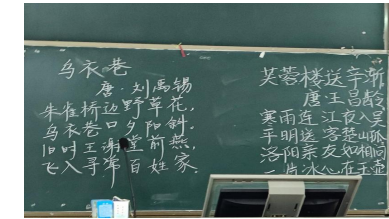 乌衣巷
唐·刘禹锡
朱雀桥边野草花,
乌衣巷口夕阳斜.
旧时王谢堂前燕,
飞入寻常百姓家.
芙蓉楼送辛渐
唐 王昌龄
寒雨连江夜入吴
平明送客楚山孤
洛阳亲友如相问
一片冰心在玉壶